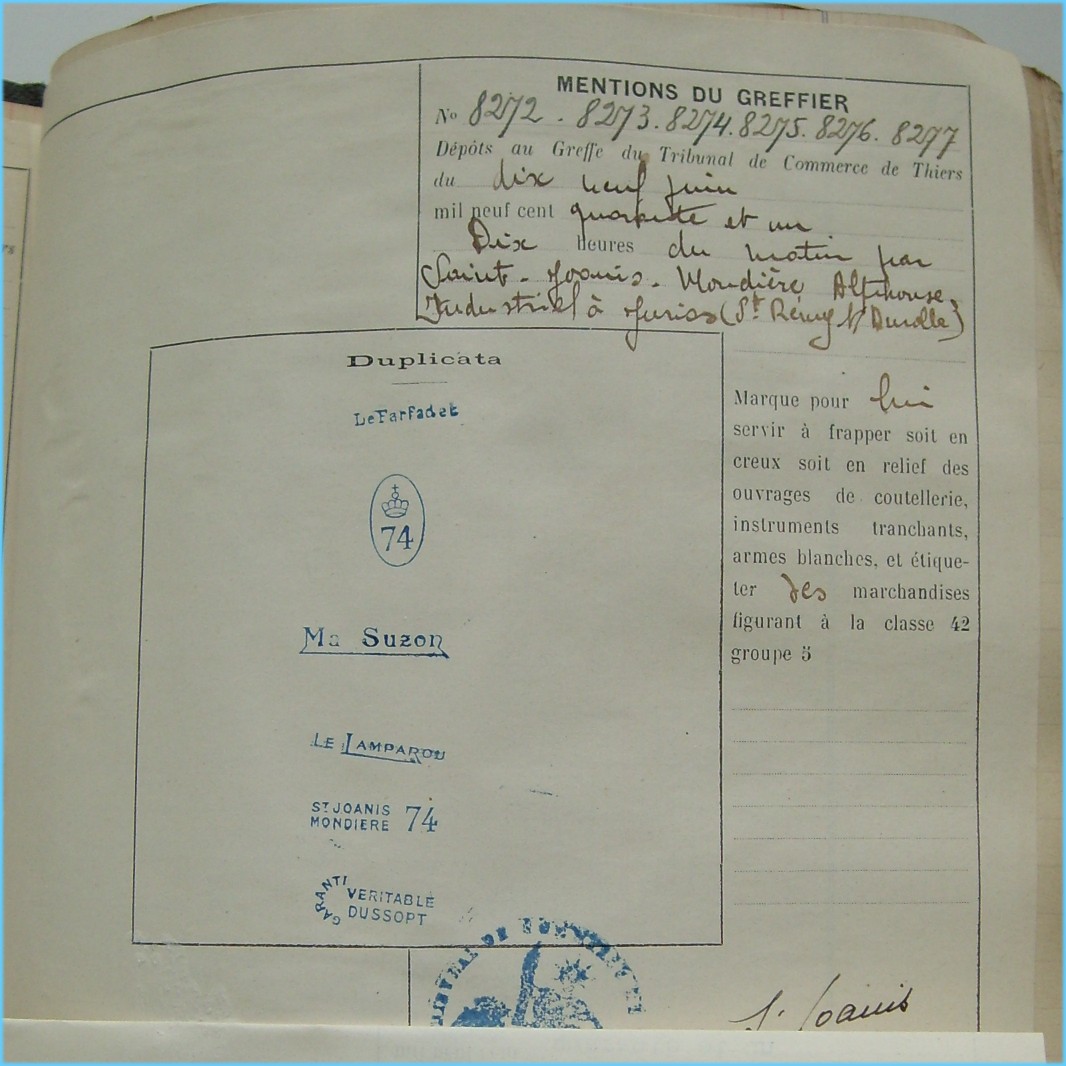 MENTIONS DU GREFFIER
No 8272 . 8273. 8274. 8275. 8276. 8277
Dépôts au Greffe du Tribunal de Commerce de Thiers
du dix neuf juin
mil neuf cent quarante et un
Dix heures du matin par
Saint-Joanis-Mondière Alphonse,
Industriel à (St Rémy s/ Durolle)
Duplicata
Le Farfadet
74
Ma Suzon
LE LAMPAROU
ST JOANIS
MONDIERE 74
GARANTI
VERITABLE
DUSSOPT
Marque pour lui
servir à frapper soit en
creux soit en relief des
ouvrages de coutellerie,
instruments tranchants,
armes blanches, et étique-
ter des marchandises
figurant à la classe 42
groupe 5
TRIBUNAL DE COMMERCE
St Joanis